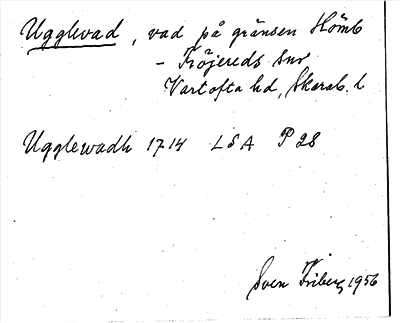 Ugglevad, vad på gränsen Hömb
- Fröjereds snr
Vartofta hd, Skarab. l
Ugglewadh 1714 LSA P 28
Sven Friberg 1956